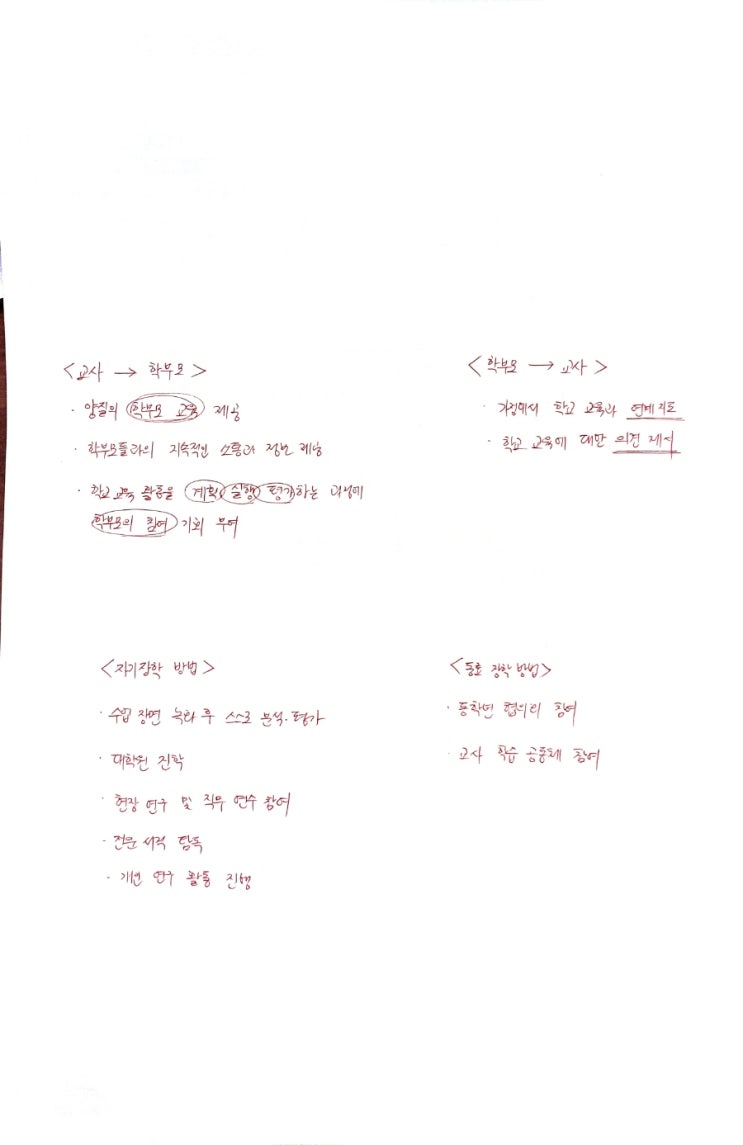 <교사 → 학부모>
· 양질의 학부모 교육 제공
· 학부모들과의 지속적인 소통과 정보 제공
· 학교 교육 활동을 계획, 실행, 평가하는 과정에
학부모의 참여 기회 부여
<학부모 → 교사>
· 가정에서 학교 교육과 연계 지도
· 학교 교육에 대한 의견 제시
<자기장학 방법>
· 수업 장면 녹화 후 스스로 분석·평가
· 대학원 진학
· 현장 연구 및 직무 연수 참여
· 전문 서적 탐독
· 개인 연구 활동 진행
<동료 장학 방법>
· 동학년 협의회 참여
· 교사 학습 공동체 참여